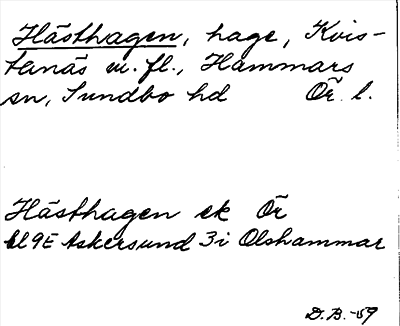 Hästhagen, hage, Kvis-
tanäs m. fl., Hammars
sn, Sundbo hd Ör. l.
Hästhagen ek Ör
bl 9E Askersund 3i Olshammar
D.B.-59